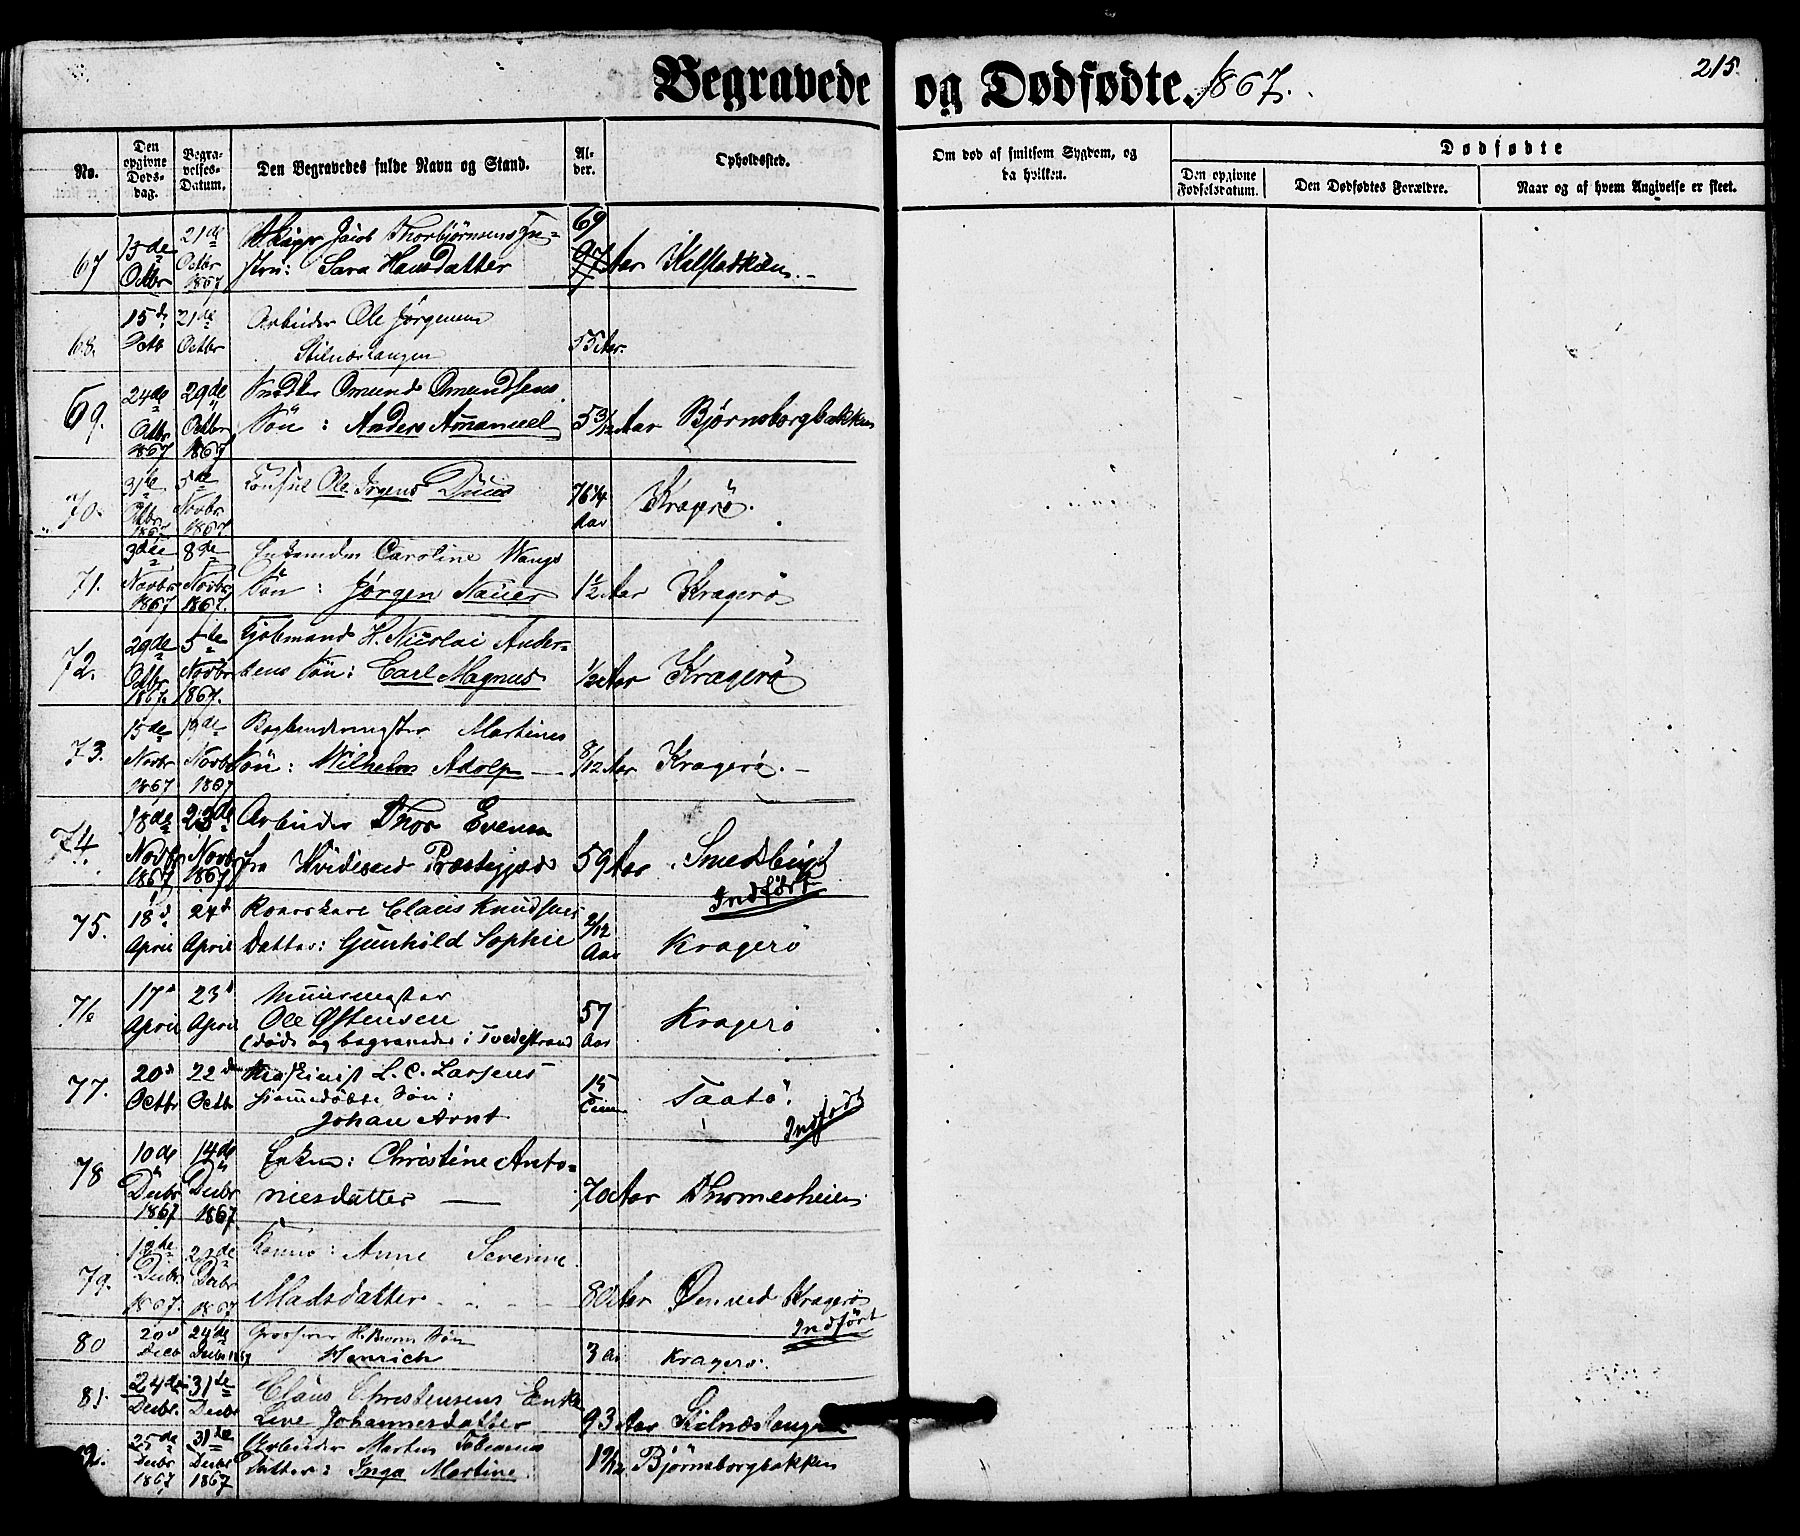 Begravede og Dødfødte. 1867.
215.
No.
Den opgivne Døds-dag.
Begra-velses-Datum.
Den Begravedes fulde Navn og Stand.
Al-der.
Opholdssted.
Om død af smitsom Sygdom, og da hvilken.
Dødfødte
Den opgivne Fødselsdatum.
Den Dødfødtes Forældre.
Naar og af hvem Angivelse er skeet.
67 15de Octbr 21de Octbr 1867 Jacob Thorbjørnsens Hu-
stru: Sara Hansdatter 69 97 Aar Kalstadkilen.
68. 15de Octb 21de Octbr Arbeider Ole Jørgensen
Stilnestangen 55 Aar.
69. 24de Octbr 1867 29de Octbr 1867 Omund Omundsens
Søn: Anders Amanuel 5 3/12 Aar Bjørnsborgbakken
70. 31te Octbr 1867 5de Novbr 1867 Consul Ole Irgens Dūus 76 1/4 Aar Kragerö.
71. 3die Novbr 1867 8de Novbr 1867. Caroline Wangs
Søn: Jørgen Nauer 1 1/2 Aar Kragerö
72. 29de Octbr 1867. 5te Novbr 1867. Kjøbmand H. Nicolai Ander-
sens Søn: Carl Magnus 1/2 Aar Kragerö
73. 15de Novbr 1867 19de Novbr 1867 Bogbindermester Martines
Søn: Wilhelm Adolp 8/12 Aar Kragerö.
74. 18de Novbr 1867 23de Novbr 1867 Arbeider Thor Evensen
fra Hvideseid Præstegjeld 59 Aar Smedsbugt
Indført
75. 18d April 24d April Claus Knudsens
Datter: Gunhild Sophie 2/12 Aar Kragerö
76 17d April 23d April Muurmester
Ole Østensen
(døde og begravedes i Tvedestrand 57 Aar Kragerö
77. 20d Octbr 22de Octbr Maskinist L. C. Larsens
hjemmedøbte Søn:
Johan Arnt 15 Timer Taatö.
Indført
78 10de Decbr 1867 14de Decbr 1867. Enken: Christine Anto-
niesdatter 70 Aar Thomesheien
79. 18de Decbr 1867. 23de Decbr 1867 Anne Severine
Madsdatter 80 Aar Øen ved Kragerö
Indført
80 20d Decb 24de Decbr 1867 Grosserer H. Biorns Søn
Henrich 3 Aar Kragerö.
81. 24de Decbr. 31te Decbr Claus Christensens Enke
Live Johannesdatter 93 Aar Stilnæstangen
82. 25de Decbr 1867 31te Decbr 1867 Arbeider Martin Tobiasens
Datter: Inga Martine Bjørnsborgbakken